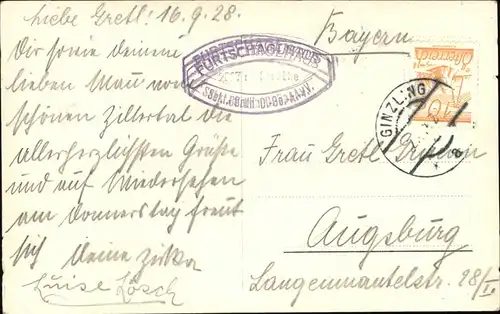 Liebe Gretl! 16.9.28.
Dir sowie deinem
lieben Mann vom
schönen Zillertal die
allerherzlichsten Grüße
und auf Wiedersehen
am Donnerstag freut
sich deine
Luise Lösch
FURTSCHAGLHAUS
Bayern
GINZLING
Frau Gretl
Augsburg
Langenmantelstr. 28/I.